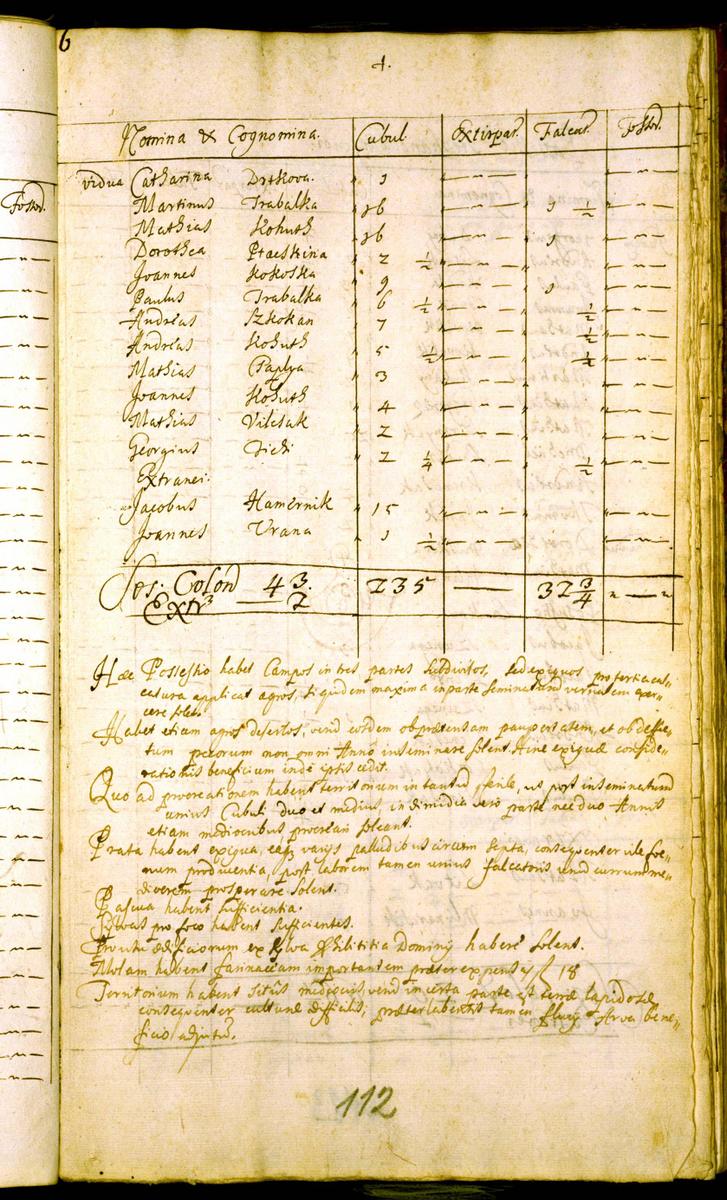 6
4.
Nomina & Cognomina. Cubul. Extirpat. Falcat. Fossor.
Fossor.
vidua Catharina Drtkova. " 1
Martinus Trabalka 16 1 ½
Mathias Kohuth 16 1
Dorothea Ptacskina " 2 ½
Joannes Kokoska " 9 1
Paulus Trabalka " 6 ½ ½
Andreas Szkokan " 7 ½
Andreas Kohuth " 5 ½ ½
Mathias Paplya " 3
Joannes Kohuth " 4
Mathias Vilcsak " 2
Georgius Tichi " 2 ¼ ½
Extranei:
Jacobus Hamernik " 15
Joannes Vrana " 1 ½
Colon 43. 235 —— 32 ¾
Extr 2
Haec Possessio habet Campos in tres partes subdivisos, sed exiguos pro fertica
applicat agros, siquidem maxima in parte seminaturam vernalem exer=
cere solet.
Habet etiam agros desertos, verum eosdem ob praetensam paupertatem, et ob defec=
tum pecorum non omni Anno inseminare solent. Hinc exiguae conside=
rationis beneficium inde ipsis cedit.
Quo ad procreationem habent territorium in tantum sterile, ut post inseminaturam
unius Cubuli duo et medius, in dimidia vero parte nec duo Annis
etiam mediocribus procreari soleant.
Prata habent exigua, eaq varys paludibus circum septa, consequenter vile foe=
num producentia, post laborem tamen unius falcatoris unum currum me=
diocrem prosperare solent.
Pascua habent sufficientia.
Silvas pro foco habent sufficientes.
aedificiorum ex Sylva Dominy habere solent.
Molam habent farinaceam importantem praeter expensas f 18
Territorium habent situs mediocris, verum in certa parte est terrae lapidosae
consequenter culturae difficilis, praeterlabentis tamen fluvy Arva bene=
ficio adjutum.
112